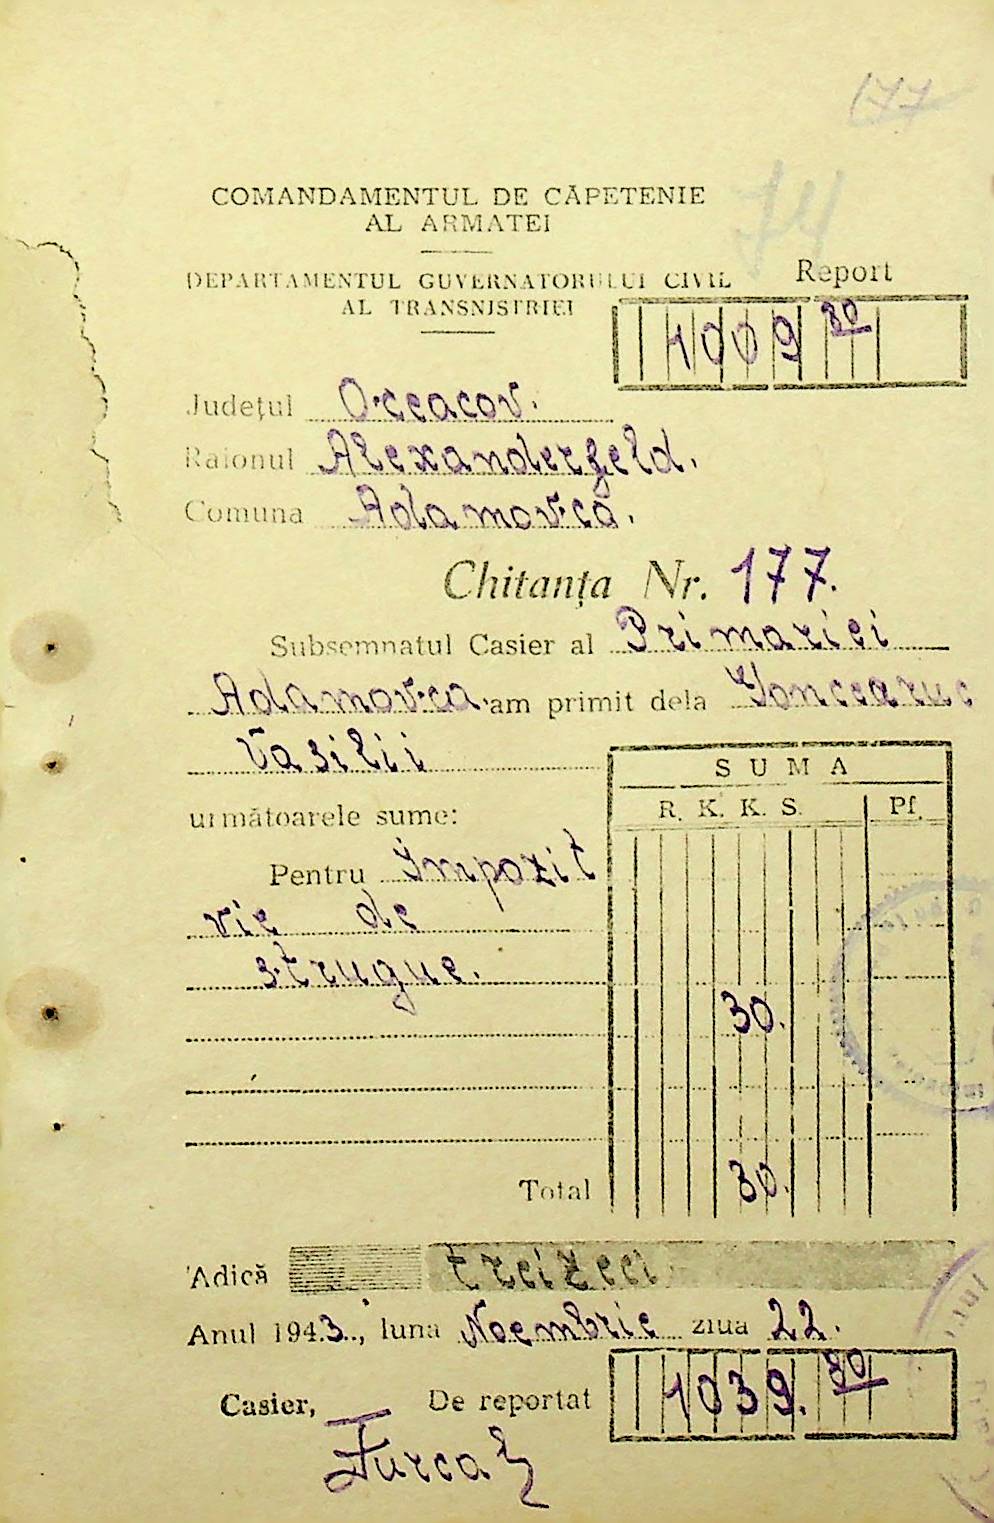 177
74
COMANDAMENTUL DE CĂPETENIE
AL ARMATEI
DEPARTAMENTUL GUVERNATORULUI CIVIL
AL TRANSNISTRIEI
Report
1009 80
Județul Oceacov.
Raionul Alexanderfeld.
Comuna Adamovca.
Chitanța Nr. 177.
Subsemnatul Casier al Primariei
Adamovca am primit dela Goncearuc
Vasilii
următoarele sume:
SUMA
R. K. K. S. Pf.
Pentru Impozit
vie de
strugue.
30.
Total 30.
Adică treizeci
Anul 1943., luna Noembrie ziua 22.
Casier, De reportat 1039. 80
Furca